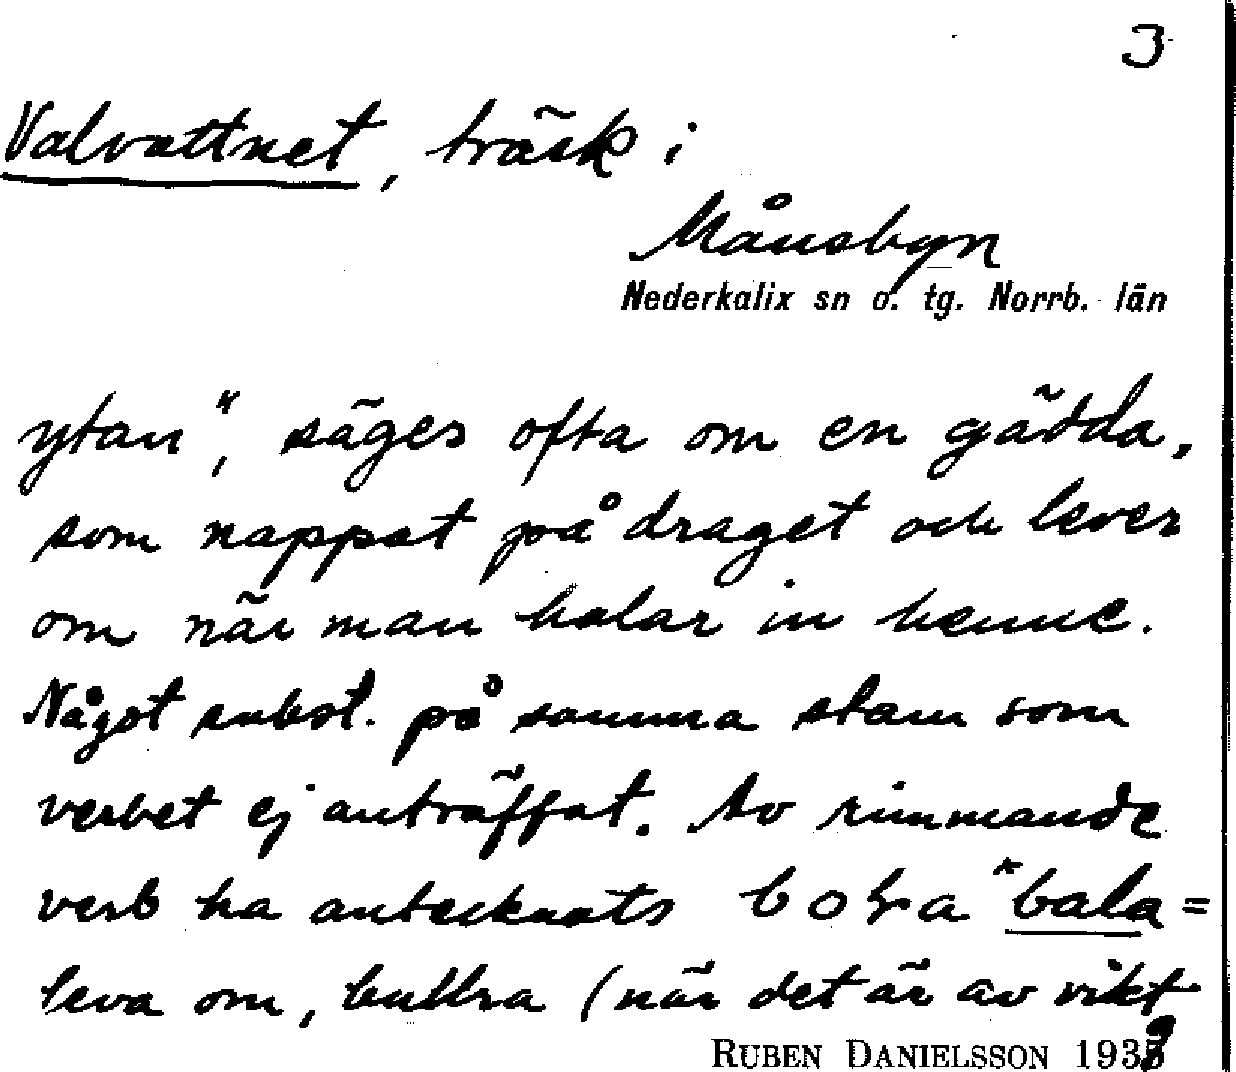 3
Valvattnet, träsk i
Månsbyn
Nederkalix sn o. tg. Norrb. län
ytan", säges ofta om en gädda,
som nappat på draget och lever
om när man halar in henne.
Något subst. på samma stam som
verbet ej anträffat. Av rimmande
verb ha antecknats *bala =
leva om, bullra (när det är av vikt
RUBEN DANIELSSON 193